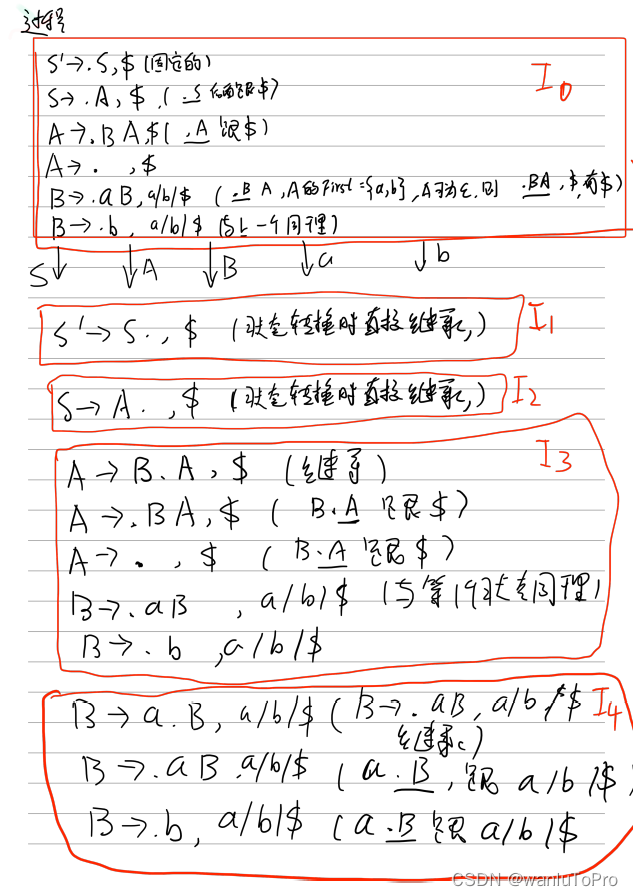 过程
S'→.S,$ (固定的)
I0
S→.A,$ (.S后面跟$)
A→.BA,$ (.A跟$)
A→. ,$
B→.aB, a/b/$ (.BA,A的First={a,b},A可为ε,则 .BA,$,有$)
B→.b, a/b/$ (与上一个同理)
S A B a b
S'→S. ,$ (状态转换时直接继承,) I1
S→A. ,$ (状态转换时直接继承,) I2
I3
A→B.A,$ (继承)
A→.BA,$ (B.A跟$)
A→. ,$ (B.A跟$)
B→.aB ,a/b/$ (与第1个状态同理)
B→.b ,a/b/$
B→a.B, a/b/$ (B→.aB, a/b/$ I4
继承)
B→.aB,a/b/$ (a.B,跟a/b/$)
B→.b, a/b/$ (a.B跟a/b/$
CSDN @wanluToPro